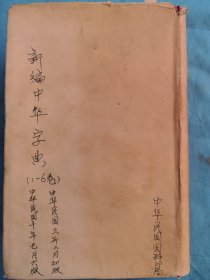 新编中华字典
(1-6卷)
中华民国三年八月初版
中华民国十年七月六版
中华民国国务印局